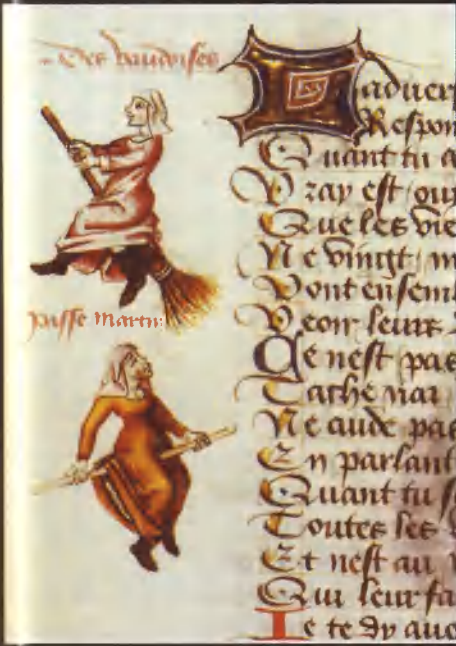 Des vaudoises
passe Martin
aduer
Respon
Quant tu a
Vray est ouy
Que les vie
Ne vingt m
Vont ensem
Veoir leurs
Ce nest pas
Ne cuide pas
En parlant
Quant tu s
Toutes les
Et nest au
Qui leur fa
Je te dy auo